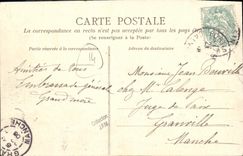 CARTE POSTALE
La correspondance au recto n'est pas acceptée par tous les pays étrangers
(Se renseigner à la Poste)
Partie réservée à la correspondance
Adresse du destinataire
14
Amitiés de tous
Embrassade général
Grand mère
Monsieur Jean
chez M. Calenge
Juge de Paix
Granville
Manche